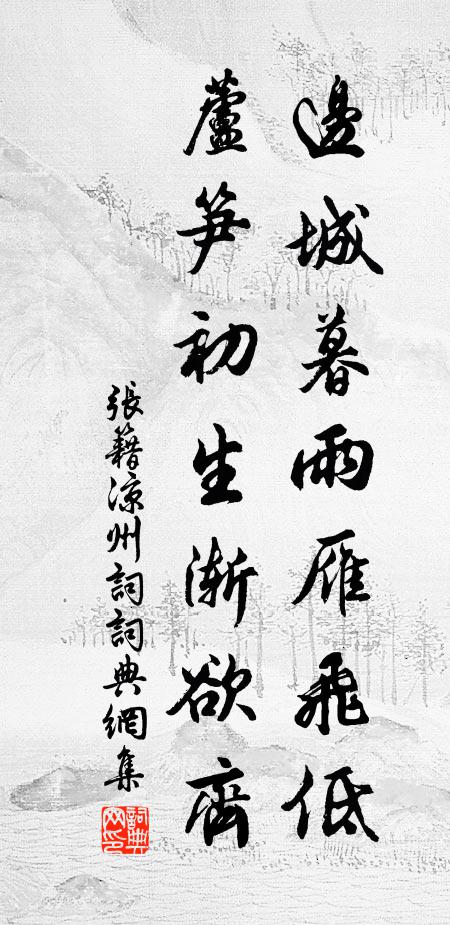 邊城暮雨雁飛低
蘆笋初生漸欲齊
張籍涼州詞詞典網集
詞典網印